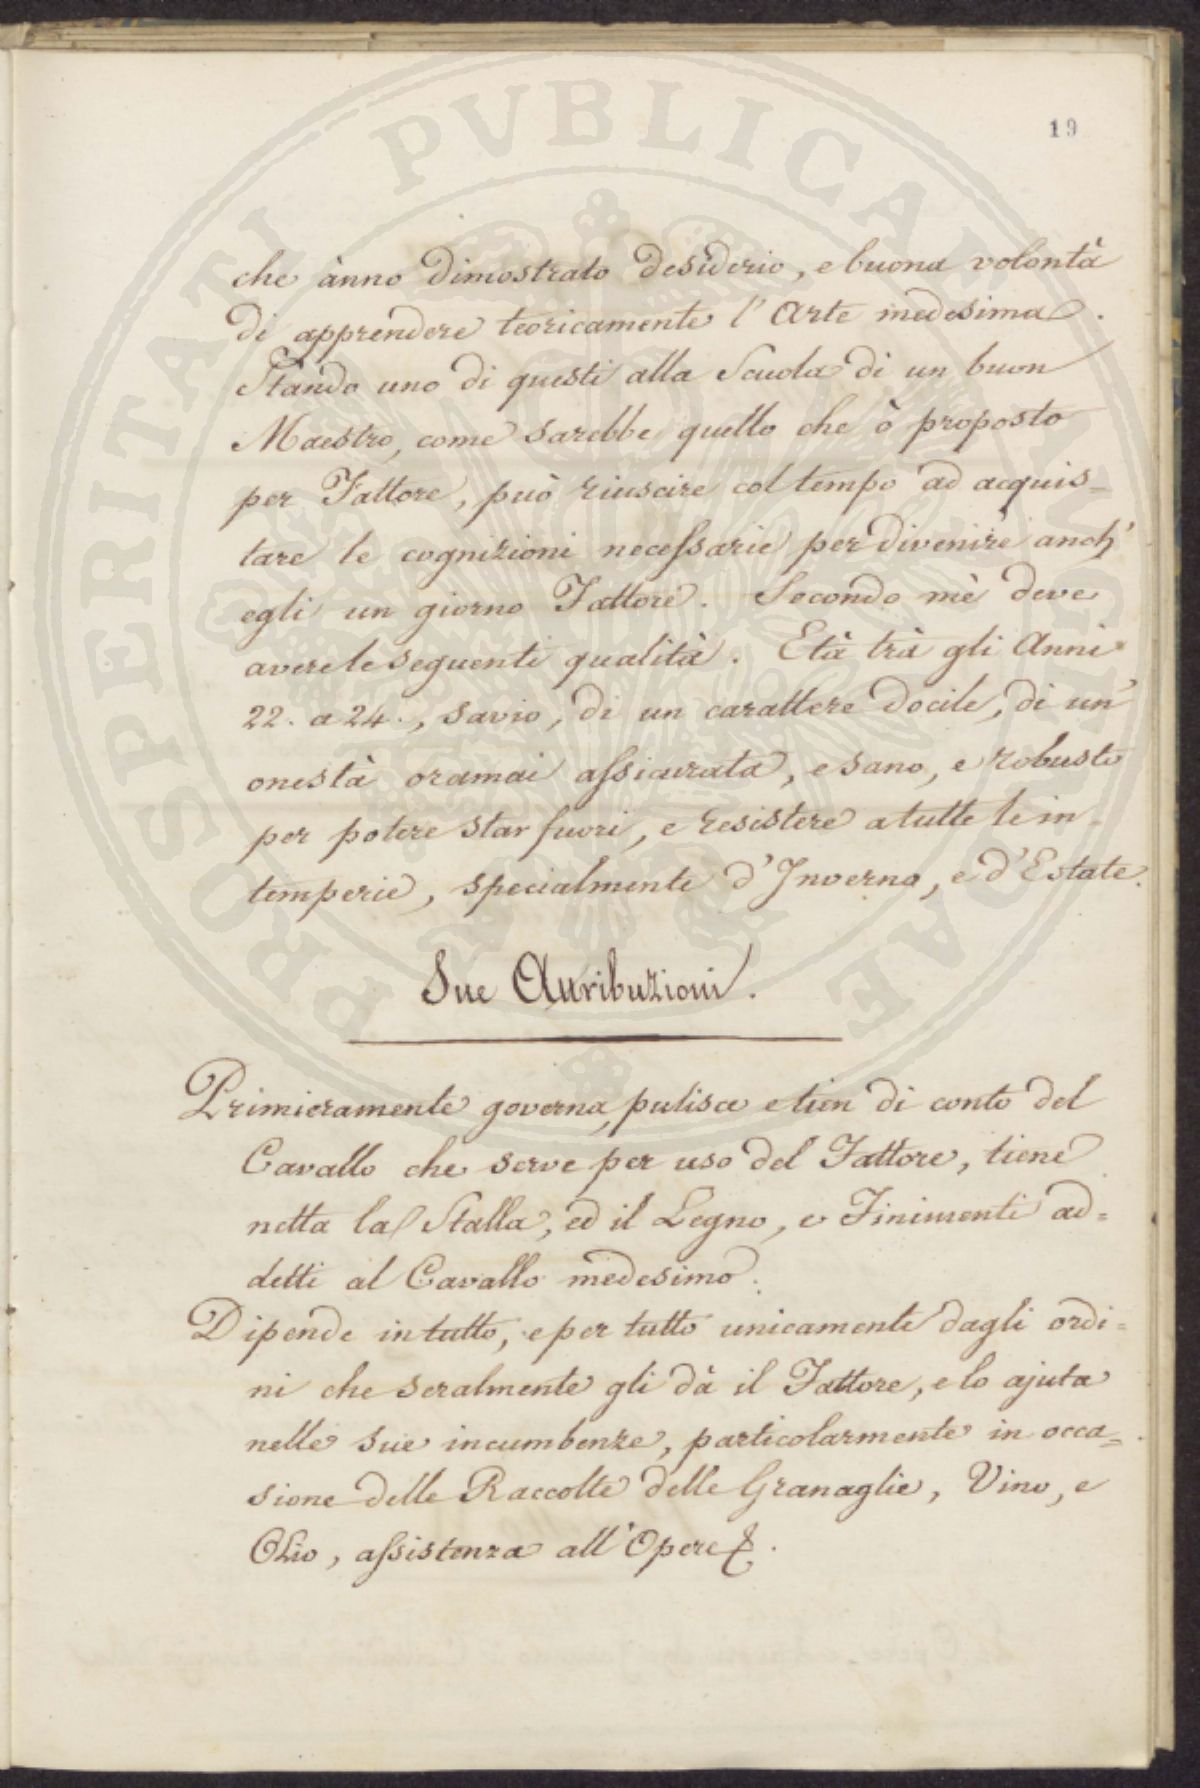 PROSPERITATI PVBLICAE AVGENDAE
19
che ànno dimostrato desiderio, e buona volontà
di apprendere teoricamente l'Arte medesima.
Stando uno di questi alla Scuola di un buon
Maestro, come sarebbe quello che ò proposto
per Fattore, può riuscire col tempo ad acquis-
tare le cognizioni necessarie per divenire anch'
egli un giorno Fattore. Secondo mè deve
avere le seguenti qualità. Età trà gli Anni
22. a 24., savio, di un carattere docile, di un'
onestà oramai assicurata, e sano, e robusto
per potere star fuori, e resistere a tutte le in-
temperie, specialmente d'Inverno, e d'Estate.
Sue Attribuzioni.
Primieramente governa, pulisce e tien di conto del
Cavallo che serve per uso del Fattore, tiene
netta la Stalla, ed il Legno, e Finimenti ad=
detti al Cavallo medesimo.
Dipende in tutto, e per tutto unicamente dagli ordi=
ni che seralmente gli dà il Fattore, e lo ajuta
nelle sue incumbenze, particolarmente in occa=
sione delle Raccolte delle Granaglie, Vino, e
Olio, assistenza all'Opere &.